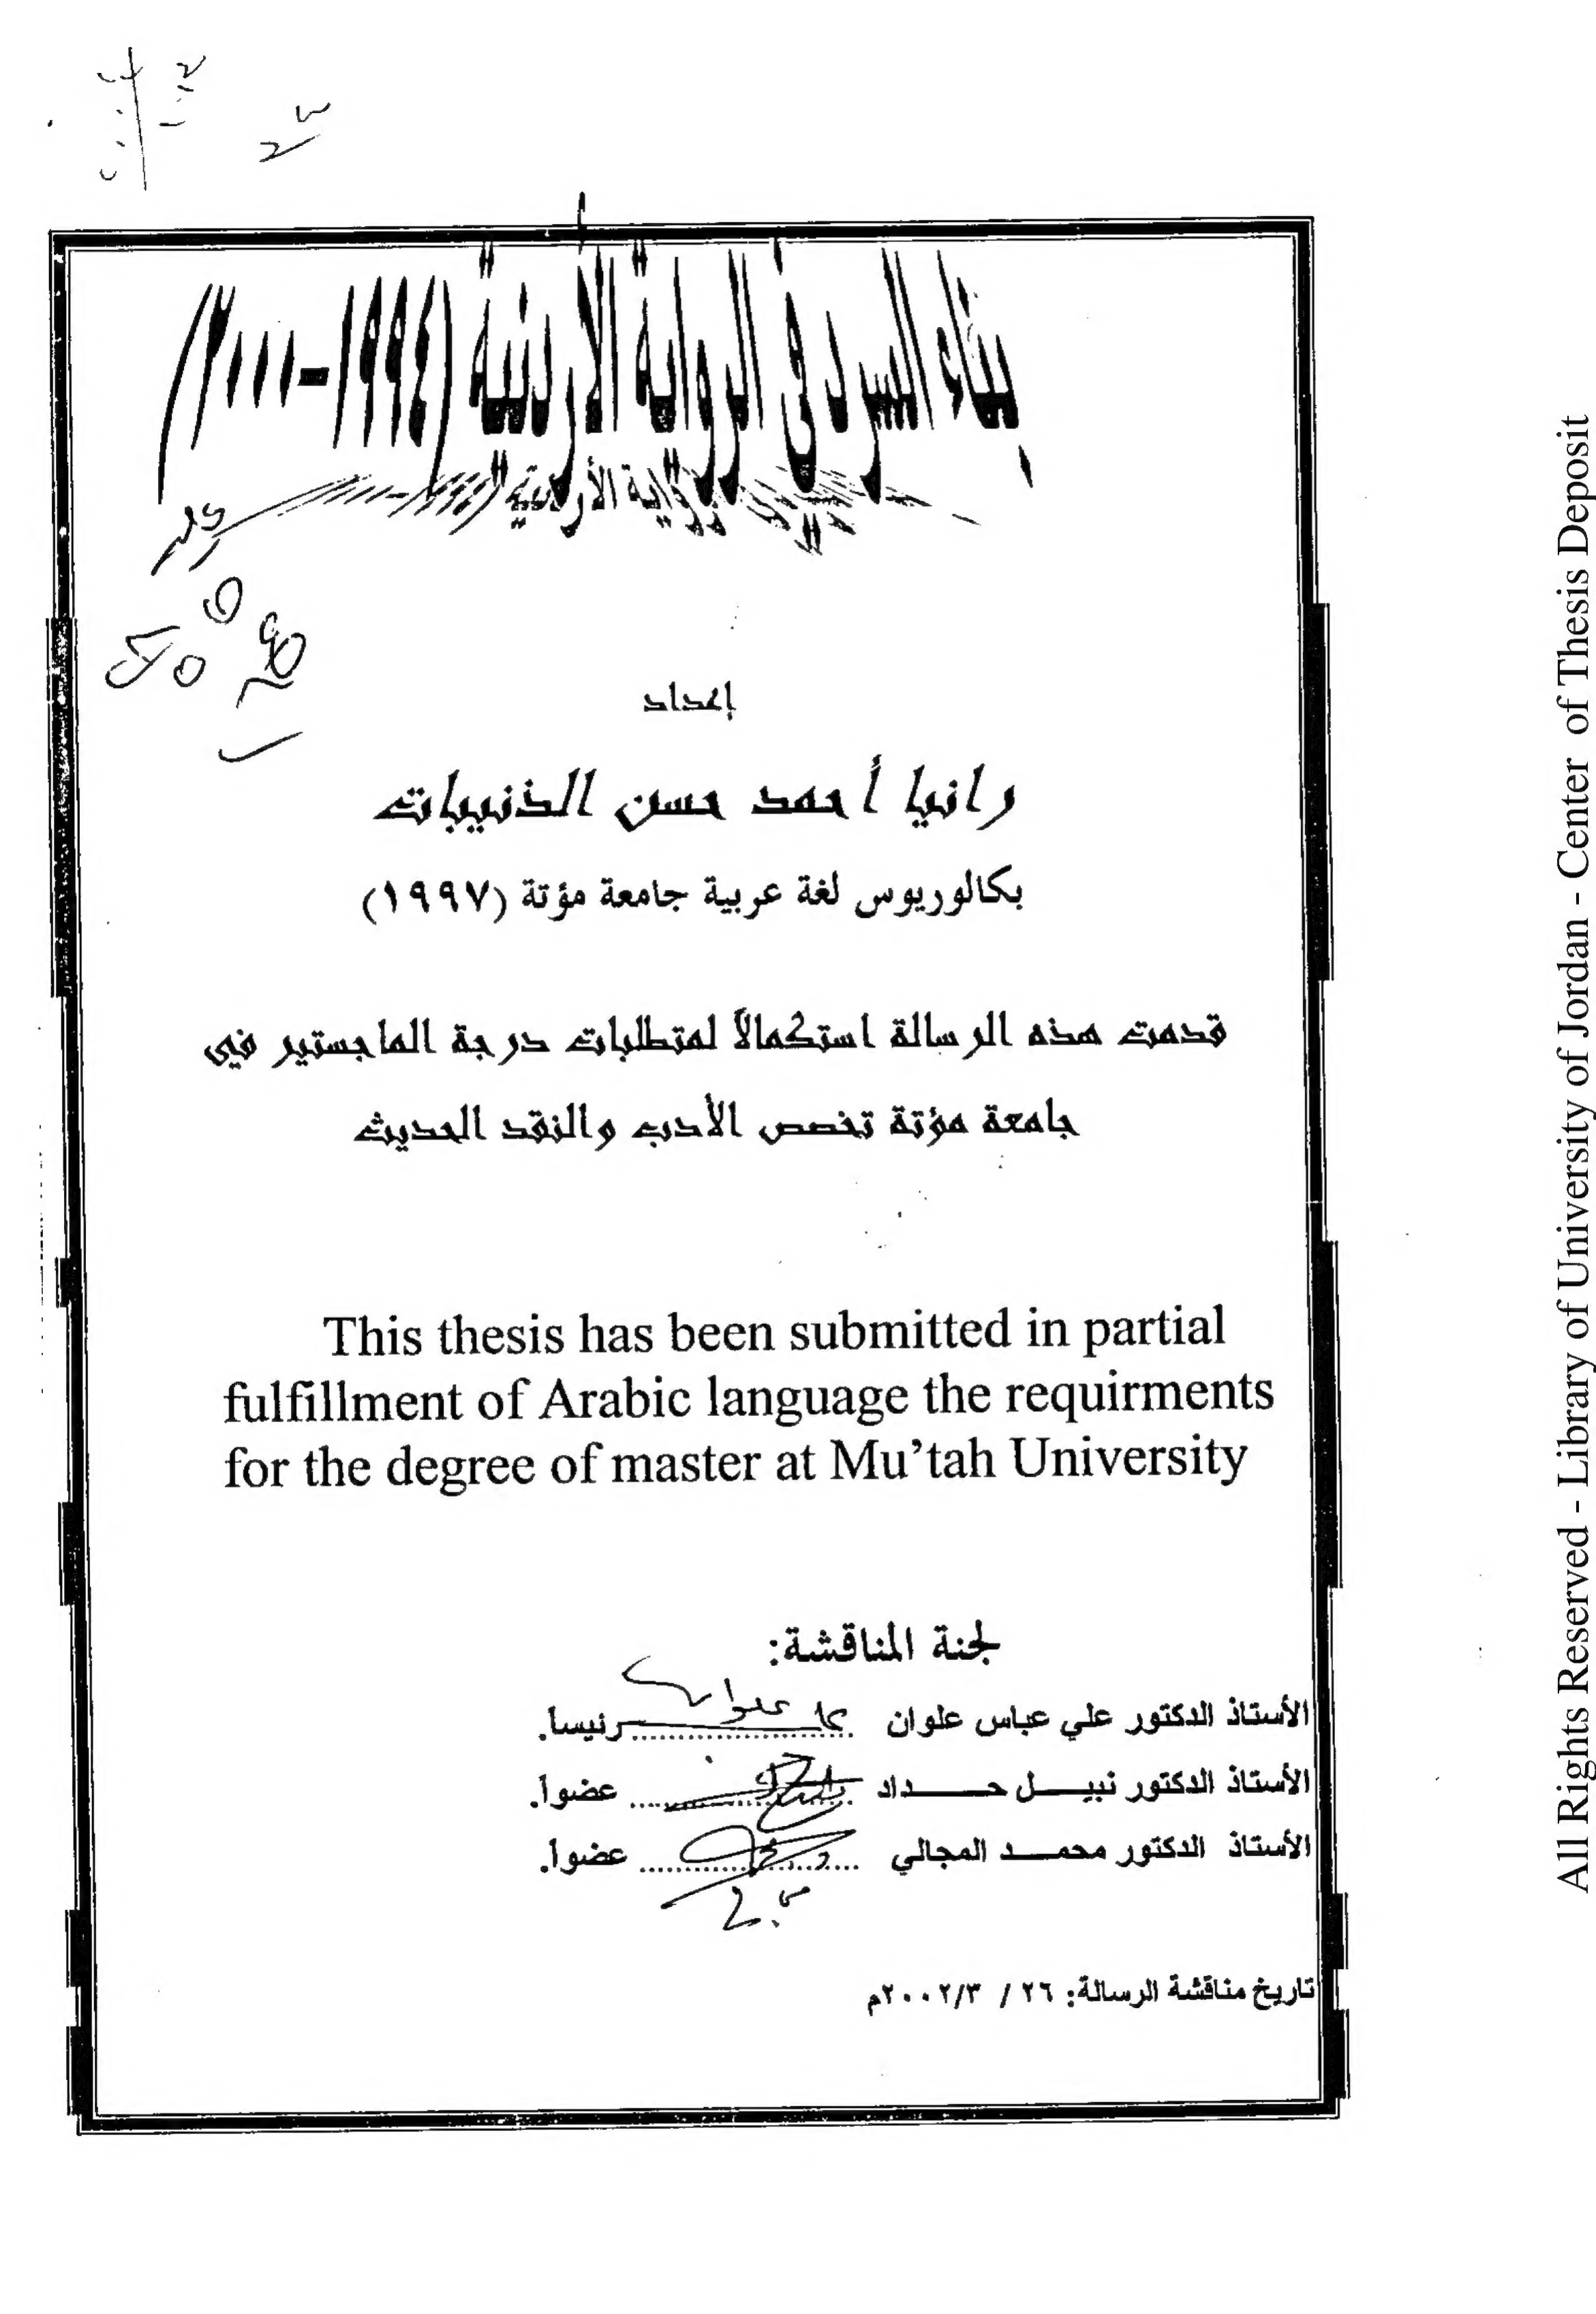 بناء السرد في الرواية الأردنية (١٩٩٤-٢٠٠٠)
إعداد
رانيا أحمد حسن الذنيبات
بكالوريوس لغة عربية جامعة مؤتة (١٩٩٧)
قدمت هذه الرسالة استكمالاً لمتطلبات درجة الماجستير في
جامعة مؤتة تخصص الأدب والنقد الحديث
This thesis has been submitted in partial
fulfillment of Arabic language the requirments
for the degree of master at Mu'tah University
لجنة المناقشة:
الأستاذ الدكتور علي عباس علوان ..................رئيسا.
الأستاذ الدكتور نبيـــل حـــــداد .................. عضوا.
الأستاذ الدكتور محمـــد المجالي .................. عضوا.
تاريخ مناقشة الرسالة: ٢٦ / ٢٠٠٢/٣م
All Rights Reserved - Library of University of Jordan - Center of Thesis Deposit